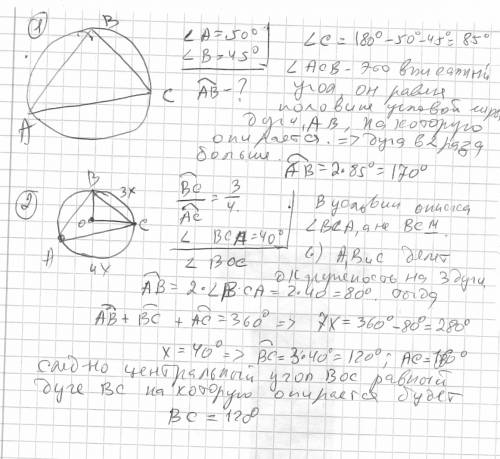 1
B
A
C
∠A = 50°
∠B = 45°
A͡B - ?
∠C = 180° - 50° - 45° = 85°
∠ACB - это вписанный
угол, он равен
половине угловой
дуги, AB, на которую
опирается. => дуга в 2 раза
больше.
A͡B = 2·85° = 170°
2
B
3x
O
C
A
4x
B͡C/A͡C = 3/4
∠ BCA = 40°
∠ BOC
В условии описка
∠BCA, а не BCM.
A, B и C делят
окружность на 3 дуги
A͡B = 2·∠BCA = 2·40 = 80°. тогда
A͡B + B͡C + A͡C = 360° => 7x = 360° - 80° = 280°
x = 40° => B͡C = 3·40° = 120°; AC = 160°
след-но центральный угол BOC равный
дуге BC на которую опирается будет
BC = 120